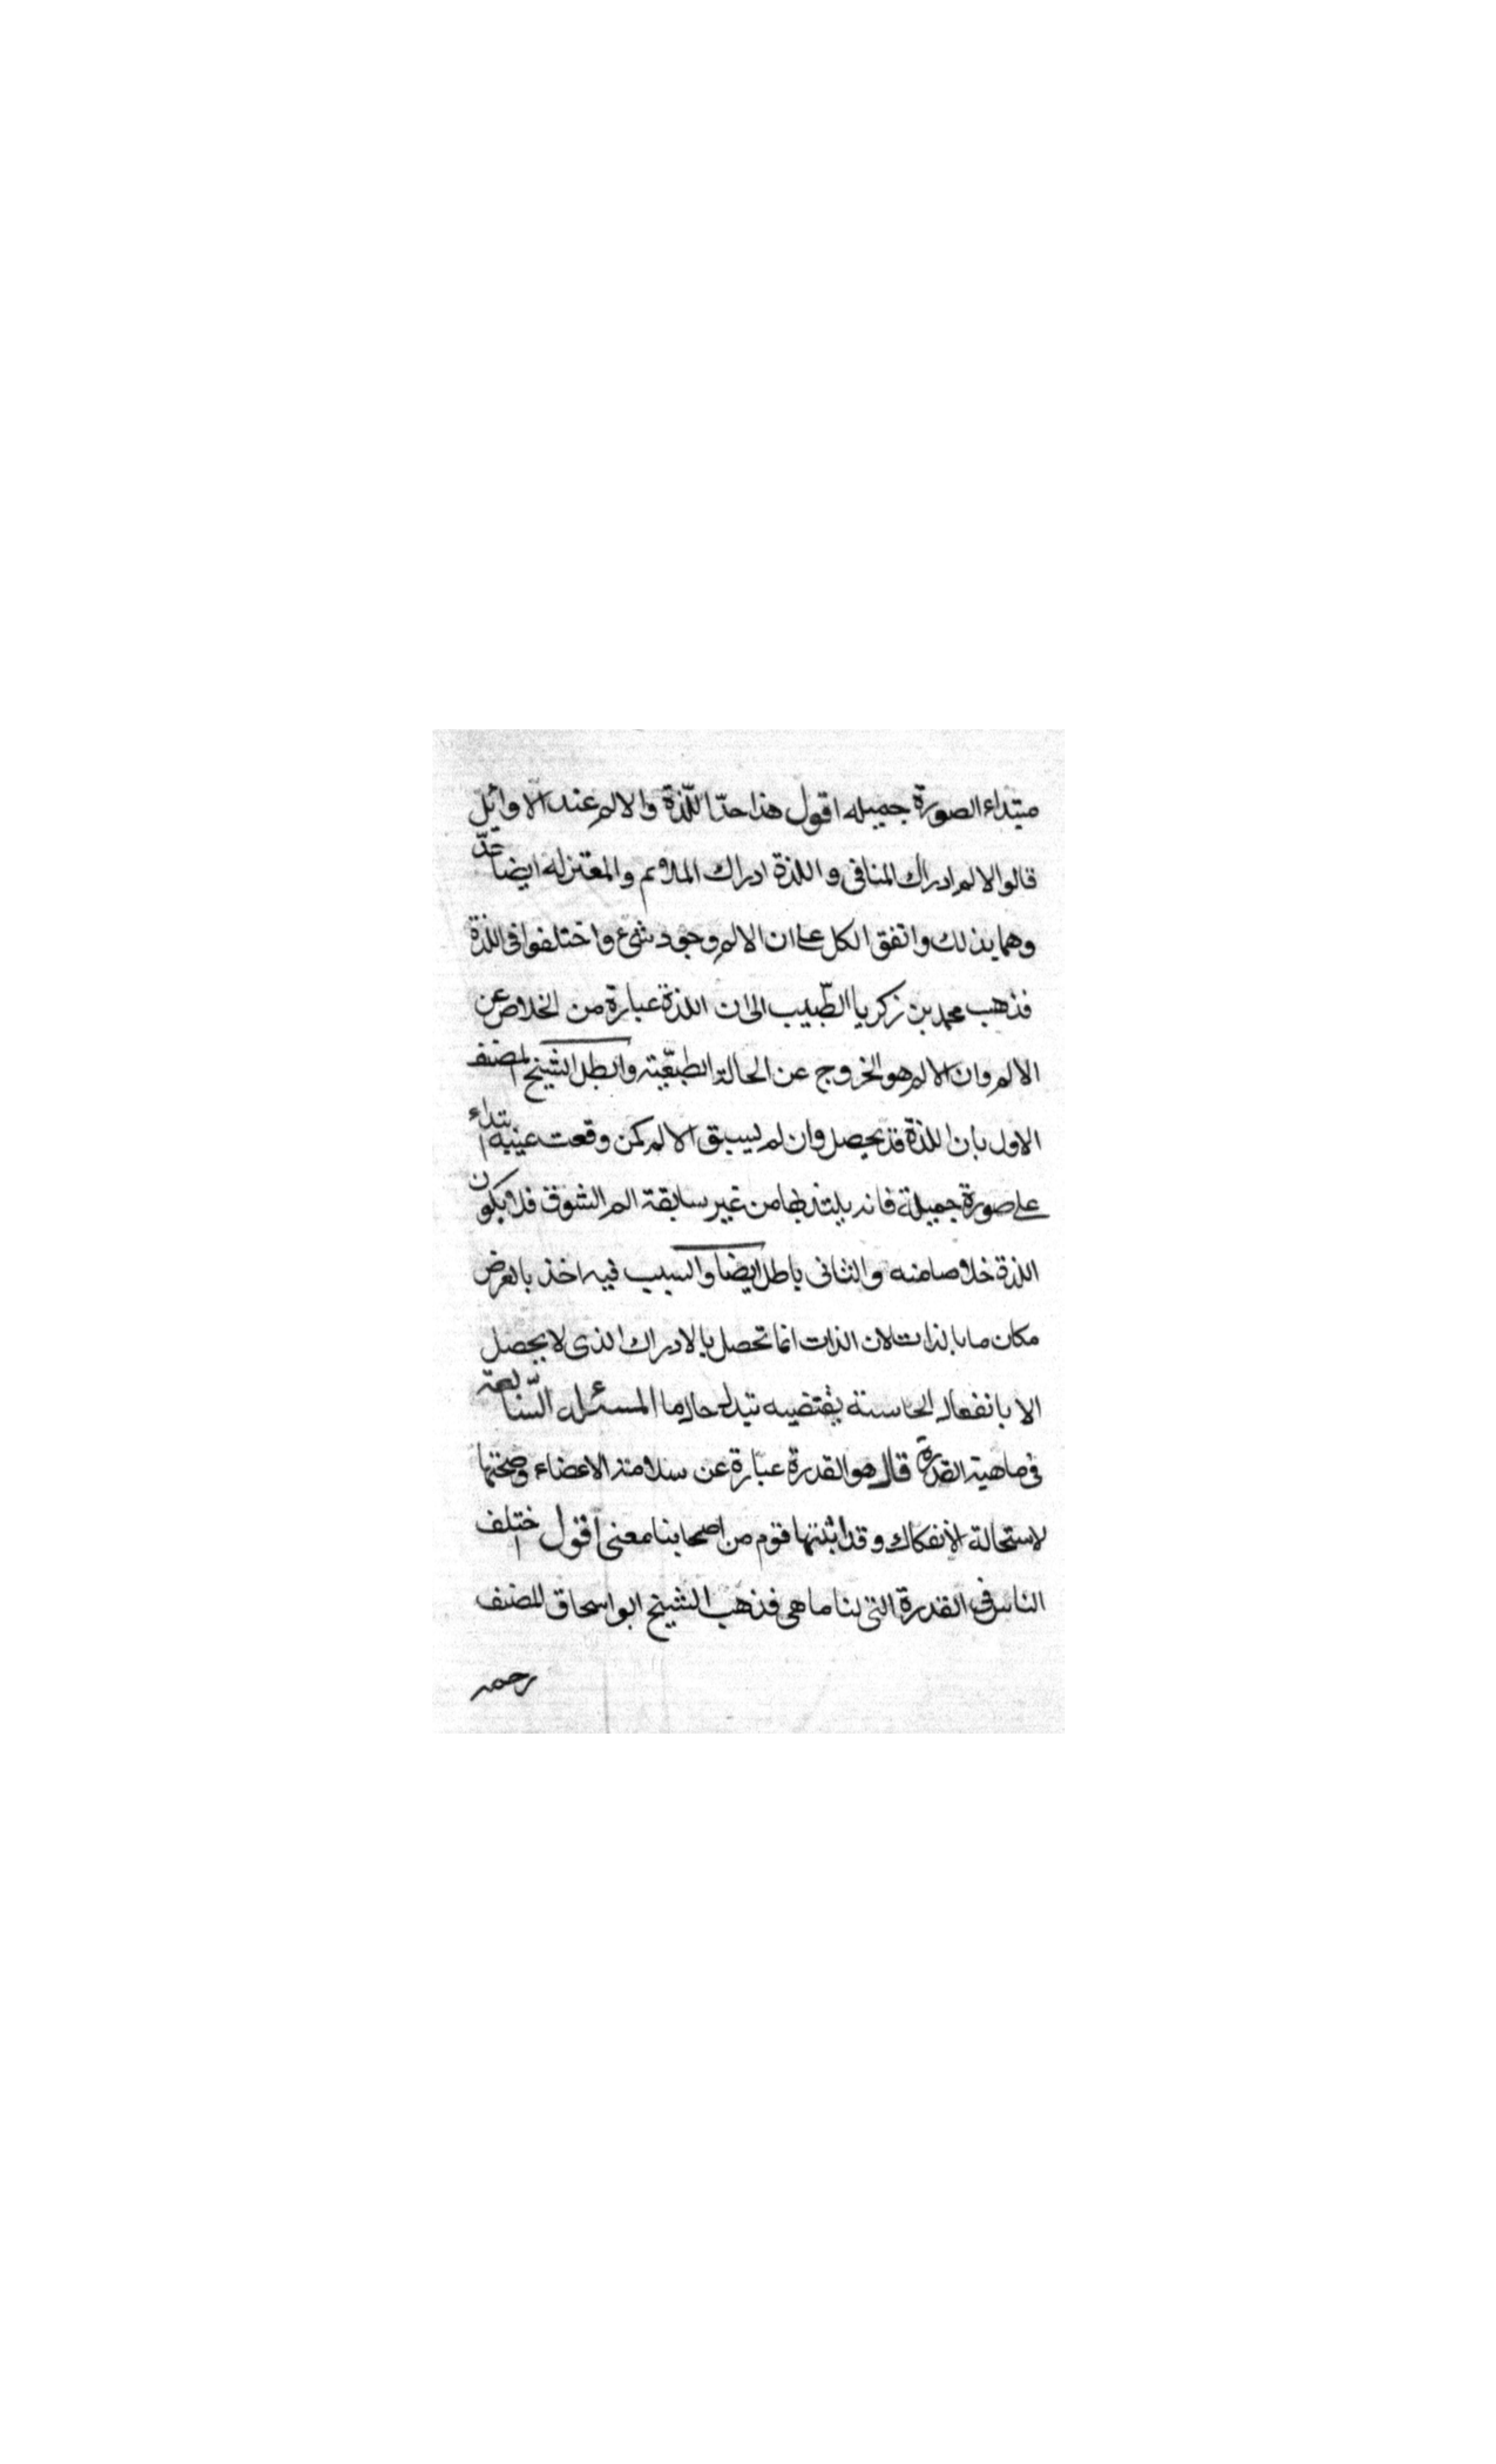 مبتداء الصورة جميله اقول هذا حدّا للّذة والالم عند الاوائل
قالوا الالم ادراك المنافى واللذة ادراك الملائم والمعتزله ايضا حدّ
وهما بذلك واتفق الكل على ان الالم وجود شئ واختلفوا فى اللذة
فذهب محمد بن زكريا الطّبيب الى ان اللذة عبارة من الخلاص عن
الالم وان الالم هو الخروج عن الحالة الطبيعّية وابطل الشيخ المصنف
الاول بان اللذة قد يحصل وان لم يسبق الالم كمن وقعت عينيه ابتداء
على صورة جميلة فانه يلتذ بها من غير سابقة الم الشوق فلا يكون
اللذة خلاصا منه والثانى باطل ايضا والسبب فيه اخذ بالعرض
مكان ما بالذات لان الذات انما تحصل بالادراك الذى لا يحصل
الا بانفعال الحاسة يقتضيه تبدل حال ما المسئله السّابعة
فى ماهية القدرة قال هو القدرة عبارة عن سلامة الاعضاء وصحتها
لاستحالة الأنفكاك وقد اثبتها قوم من اصحابنا معنى أقول اختلف
الناس فى القدرة التى لنا ما هى فذهب الشيخ ابو اسحاق المصنف
رحمه